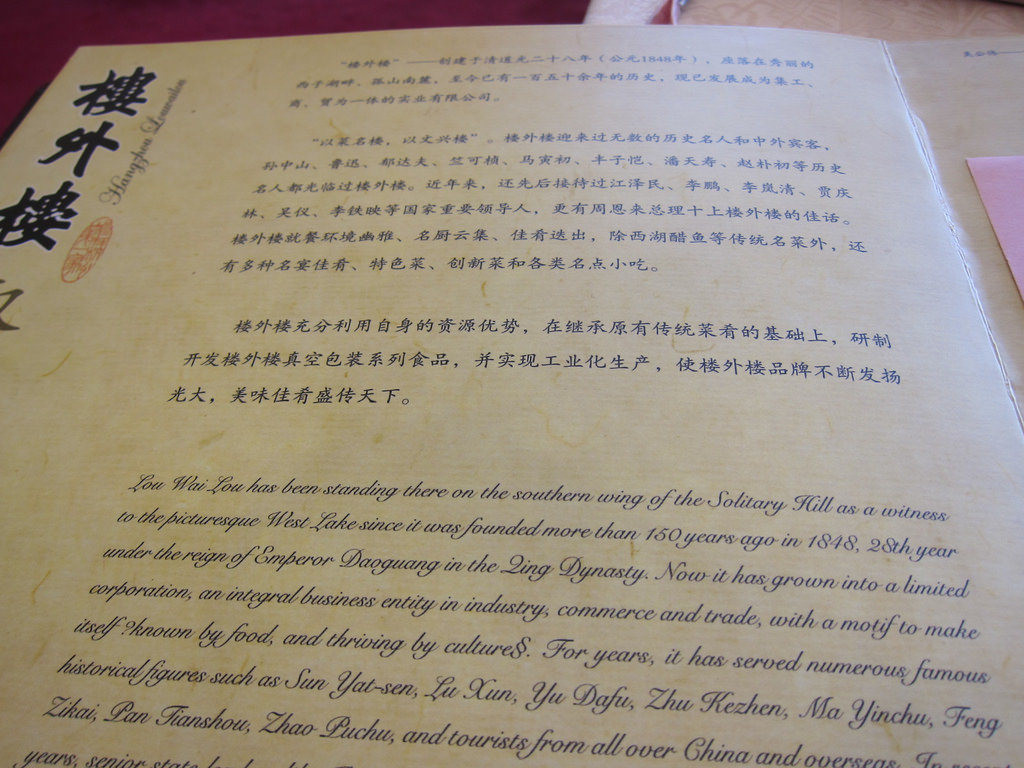 樓外樓
Hangzhou Louwailou
“楼外楼”——创建于清道光二十八年（公元1848年），座落在秀丽的
西子湖畔、孤山南麓，至今已有一百五十余年的历史，现已发展成为集工、
商、贸为一体的实业有限公司。
“以菜名楼，以文兴楼”。楼外楼迎来过无数的历史名人和中外宾客，
孙中山、鲁迅、郁达夫、竺可桢、马寅初、丰子恺、潘天寿、赵朴初等历史
名人都光临过楼外楼。近年来，还先后接待过江泽民、李鹏、李岚清、贾庆
林、吴仪、李铁映等国家重要领导人，更有周恩来总理十上楼外楼的佳话。
楼外楼就餐环境幽雅、名厨云集、佳肴迭出，除西湖醋鱼等传统名菜外，还
有多种名宴佳肴、特色菜、创新菜和各类名点小吃。
楼外楼充分利用自身的资源优势，在继承原有传统菜肴的基础上，研制
开发楼外楼真空包装系列食品，并实现工业化生产，使楼外楼品牌不断发扬
光大，美味佳肴盛传天下。
Lou Wai Lou has been standing there on the southern wing of the Solitary Hill as a witness
to the picturesque West Lake since it was founded more than 150 years ago in 1848, 28th year
under the reign of Emperor Daoguang in the Qing Dynasty. Now it has grown into a limited
corporation, an integral business entity in industry, commerce and trade, with a motif to make
itself ?known by food, and thriving by culture§. For years, it has served numerous famous
historical figures such as Sun Yat-sen, Lu Xun, Yu Dafu, Zhu Kezhen, Ma Yinchu, Feng
Zikai, Pan Tianshou, Zhao Puchu, and tourists from all over China and overseas. In recent
years, senior state